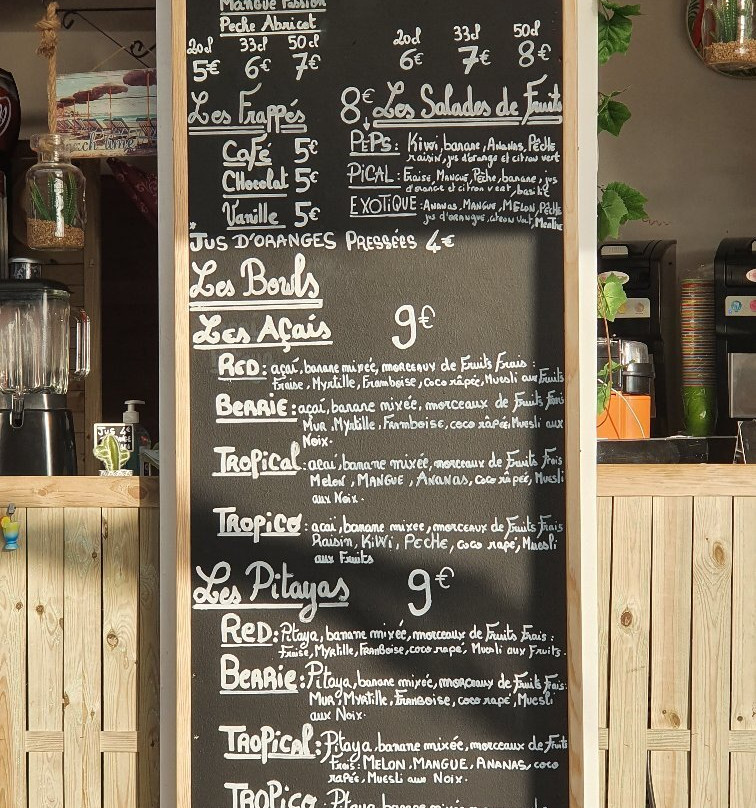 Mangue Passion
Peche Abricot
20cl 33cl 50cl
5€ 6€ 7€
20cl 33cl 50cl
6€ 7€ 8€
Les Frappés
Café 5€
Chocolat 5€
Vanille 5€
8€ Les Salades de Fruits
PEPS: Kiwi, banane, Ananas, Pêche
raisin, jus d'orange et citron vert
PiCAL: Fraise, Mangue, Pêche, banane, jus
d'orange et citron vert, basilic
EXOTiQUE: Ananas, MANGUE, MELON, Pêche
jus d'orangue, citron Vert, Menthe
JUS D'ORANGES PRESSÉES 4€
Les Bowls
Les Açais 9€
RED: açaï, banane mixée, morceaux de Fruits Frais:
Fraise, Myrtille, Framboise, coco râpée, Muesli aux Fruits
BERRIE: açaï, banane mixée, morceaux de Fruits Frais
Mur, Myrtille, Framboise, coco râpée, Muesli aux
Noix.
TROPICAL: açai, banane mixée, morceaux de Fruits Frais
Melon, MANGUE, ANANAS, coco râpée, Muesli
aux Noix.
TROPICO: açai, banane mixée, morceaux de Fruits Frais
Raisin, KiWi, PECHE, coco rapé, Muesli
aux Fruits
Les Pitayas 9€
RED: Pitaya, banane mixée, morceaux de Fruits Frais:
Fraise, Myrtille, Framboise, coco rapé, Muesli aux Fruits.
BERRIE: Pitaya, banane mixée, morceaux de Fruits Frais:
MUR, Myrtille, Framboise, coco rapé, Muesli
aux Noix.
TROPICAL: Pitaya, banane mixée, morceaux de Fruits
Frais: MELON, MANGUE, ANANAS, coco
rapée, Muesli aux Noix.
TROPICO: Pitaya, banane mixée, morceaux de Fruits
JUS 4€